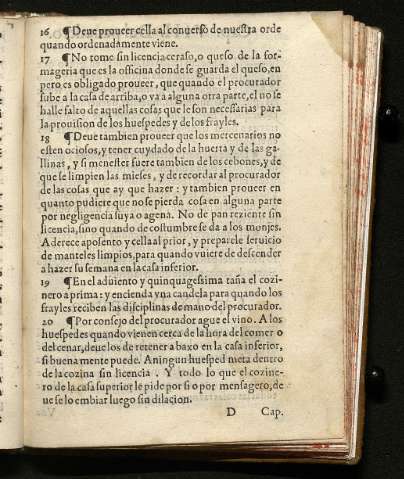 16 ¶Deue proueer cella al conuerso de nuestra orde
quando ordenadamente viene.
17 ¶No tome sin licencia ceraso, o queso de la for-
mageria que es la officina donde se guarda el queso, en
pero es obligado proueer, que quando el procurador
sube a la casa de arriba, o va a alguna otra parte, el no se
halle falto de aquellas cosas que le son necessarias para
la prouision de los huespedes y de los frayles.
18 ¶Deue tambien proueer que los mercenarios no
esten ociosos, y tener cuydado de la huerta y de las ga-
llinas, y si menester fuere tambien de los cebones, y de
que se limpien las mieses, y de recordar al procurador
de las cosas que ay que hazer: y tambien proueer en
quanto pudiere que no se pierda cosa en alguna parte
por negligencia suya o agena. No de pan reziente sin
licencia, sino quando de costumbre se da a los monjes.
Aderece aposento y cella al prior, y preparele seruicio
de manteles limpios, para quando vuiere de descender
a hazer su semana en la casa inferior.
19 ¶En el aduiento y quinquagessima taña el cozi-
nero a prima: y encienda vna candela para quando los
frayles reciben las disciplinas de mano del procurador.
20 ¶Por consejo del procurador ague el vino. A los
huespedes quando vienen cerca de la hora del comer o
del cenar, deue los de retener a baxo en la casa inferior,
si buenamente puede. A ningun huesped meta dentro
de la cozina sin licencia. Y todo lo que el cozine-
ro de la casa superior le pide por si o por mensagero, de
ue se lo embiar luego sin dilacion.
D Cap.